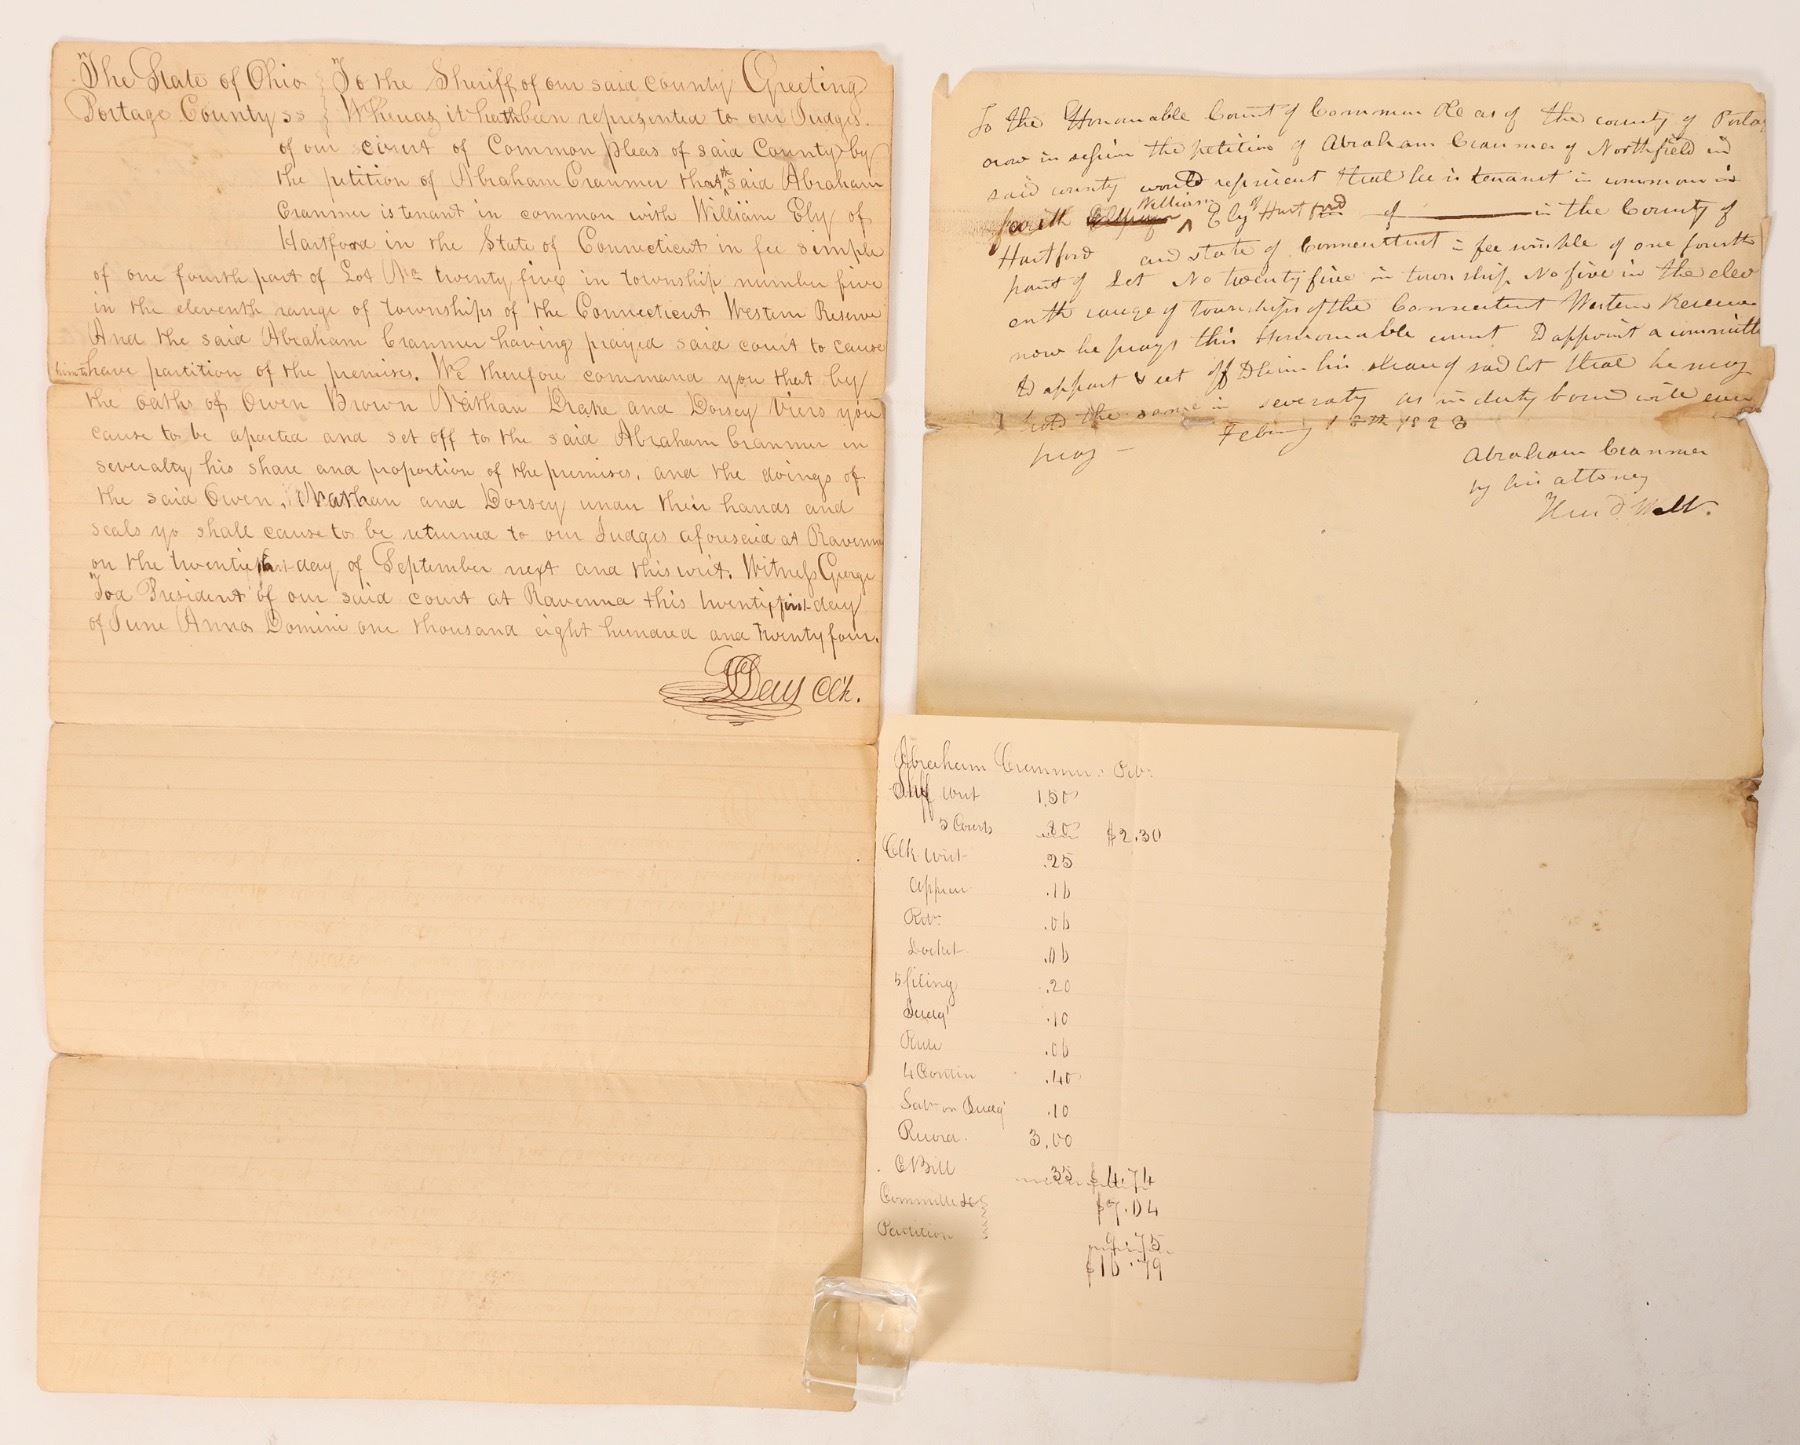 The State of Ohio } To the Sheriff of our said County Greeting
Portage County ss } Whereas it hath been represented to our Judges
of our court of Common pleas of said County by
the petition of Abraham Cranmer that the said Abraham
Cranmer is tenant in common with William Ely of
Hartford in the State of Connecticut in fee simple
of one fourth part of Lot No twenty five in township number five
in the eleventh range of townships of the Connecticut Western Reserve
And the said Abraham Cranmer having prayed said court to cause
him to have partition of the premises. We therefore command you that by
the oaths of Owen Brown Nathan Drake and Dorsey Viers you
cause to be aparted and set off to the said Abraham Cranmer in
severalty his share and proportion of the premises, and the doings of
the said Owen, Nathan and Dorsey under their hands and
seals yo shall cause to be returned to our Judges aforesaid at Ravenna
on the twenty first day of September next and this writ. Witness George
Tod President of our said court at Ravenna this twenty first day
of June Anno Domini one thousand eight hundred and twenty four.
Day Clk.
To the Honourable Court of Common Pleas of the county of Portag
now in session the petition of Abraham Cranmer of Northfield in
said county would represent that he is tenant in common in
with William Ely of Hartford of in the County of
Hartford and state of Connecticut in fee simple of one fourth
part of Lot No twenty five in township No five in the elev
enth range of townships of the Connecticut Western Reserve
now he prays this Honourable court to appoint a committe
to appart & set off to him his share of said lot that he may
hold the same in severalty as in duty bound will ever
pray — Februy 18th 1823
Abraham Cranmer
by his attorney
Abraham Cranmer Petr
Shff writ 1.50
5 Courts .80 $2.30
Clk writ .25
Appear .16
Retr .06
Docket .06
5 filing .20
Judgt .10
Rule .06
4 Contin .40
Satr on Judgt .10
Record 3.00
CBill .35 $4.74
Committee $7.04
Partition 9.75
$16.79